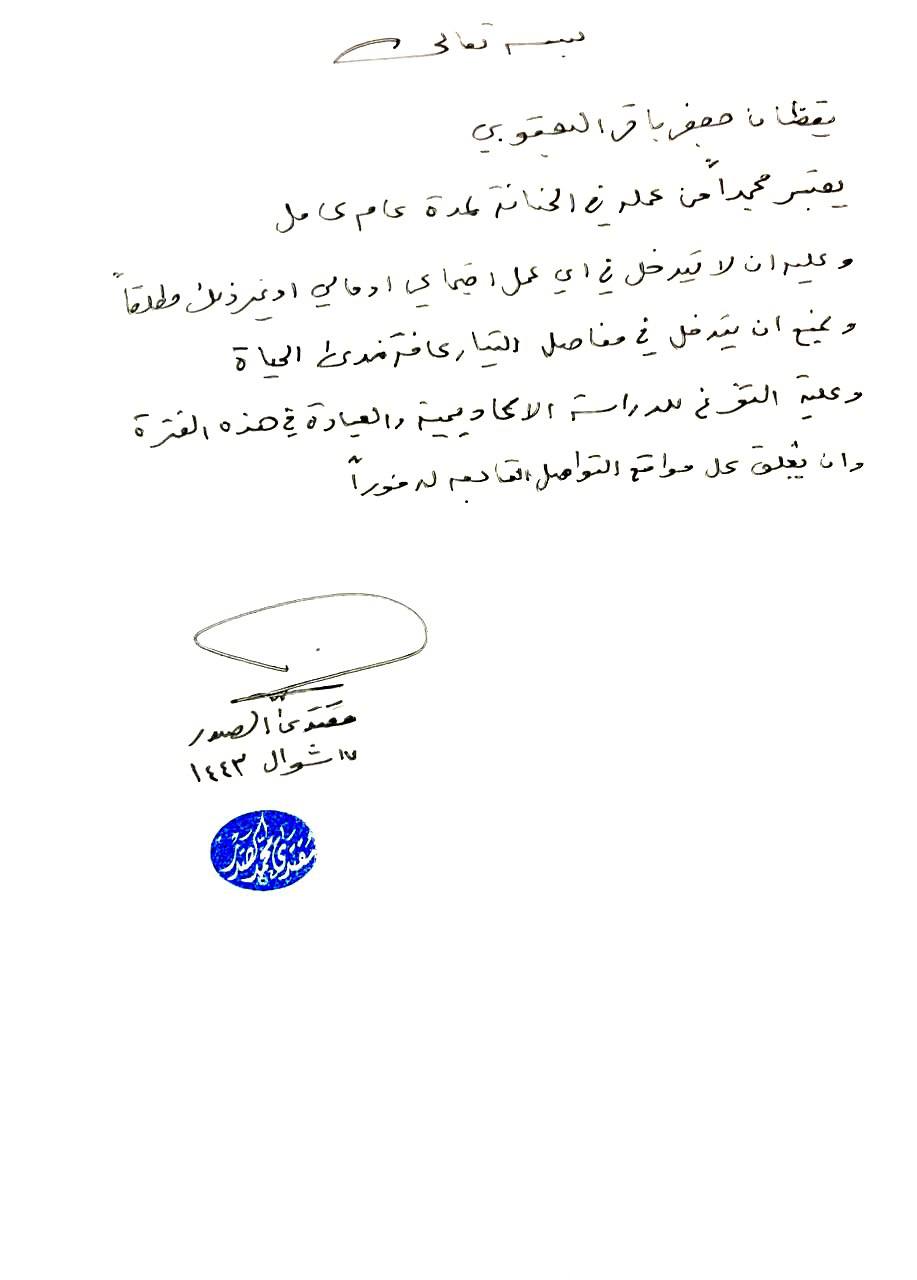 بسمه تعالى
يقظان جعفر باقر اليعقوبي
يعتبر مجمداً من عمله في الحنانة لمدة عام كامل
وعليه ان لا يتدخل في اي عمل اجتماعي او مالي او غير ذلك مطلقاً
ويمنع ان يتدخل في مفاصل التيار كافة مدى الحياة
وعلية التفرغ للدراسة الاكاديمية والعبادة في هذه الفترة
وان يُغلق كل مواقع التواصل التابعه له فوراً
مقتدى الصدر
١٧ شوال ١٤٤٣
مقتدى محمد الصدر